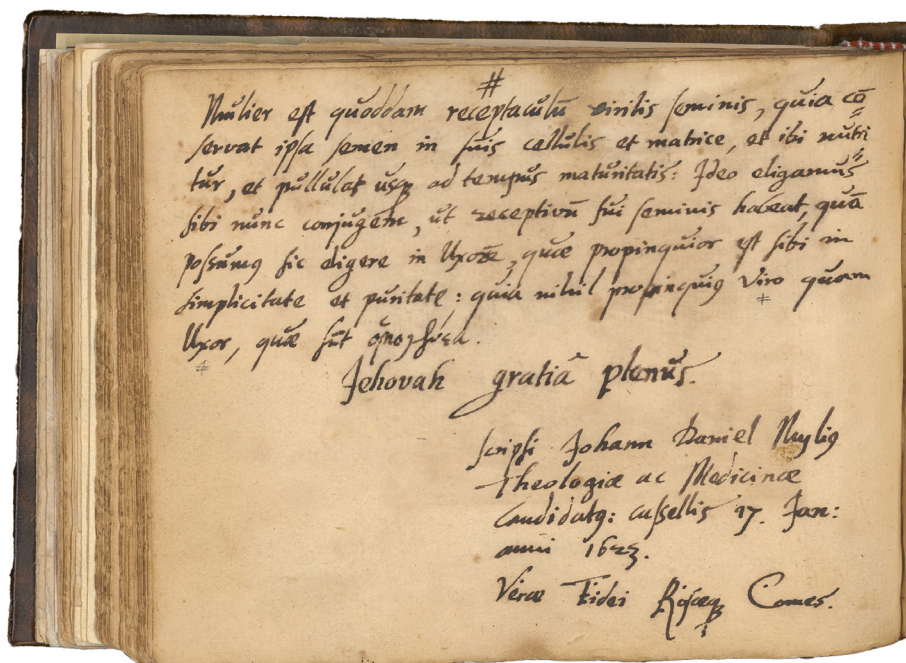 #
Mulier est quoddam receptaculū virilis seminis, quia cō=
servat ipsa semen in suis cellulis et matrice, et ibi nutri=
tur, et pullulat usq ad tempus maturitatis: Ideo eligamus
sibi nunc conjugem, ut receptivū sui seminis habeat, quā
possumꝰ sic eligere in Uxorē, quæ propinquior est sibi in
simplicitate et puritate: quia nihil propinquiꝰ viro quam
Uxor, quæ sūt
Jehovah gratiâ plenus.
Scripsi Johann Daniel Myliꝰ
Theologiæ ac Medicinæ
Candidatꝰ: Cassellis 17. Jan:
anni 1623.
Veræ Fidei Comes.